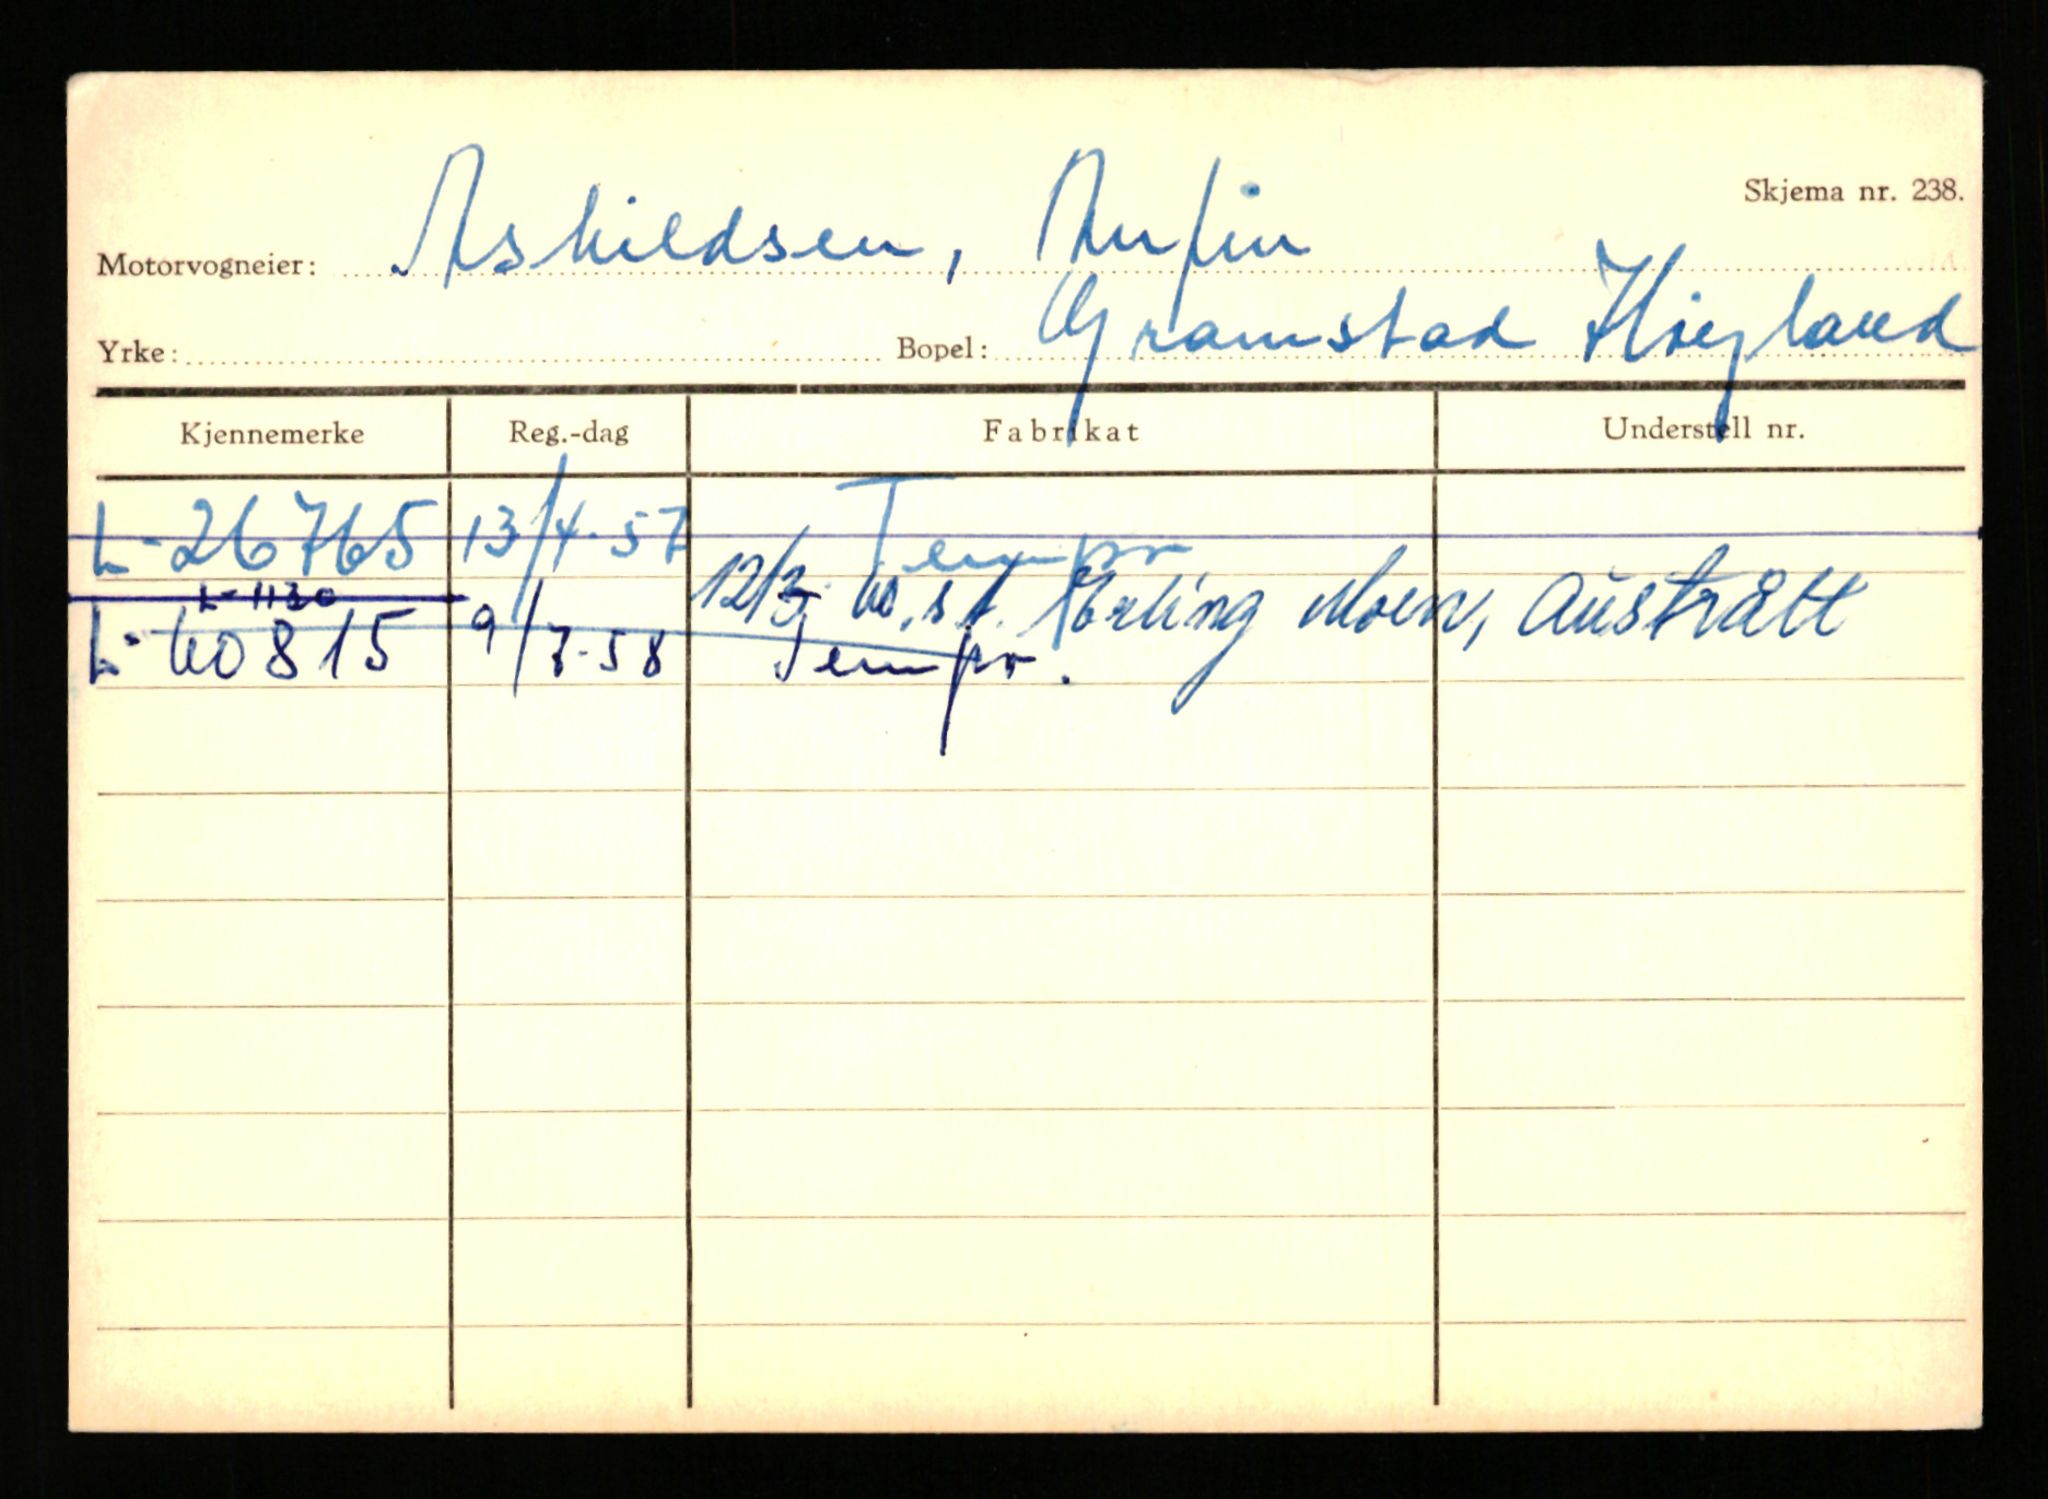 Skjema nr. 238.
Motorvogneier: Ashildsen, Arfin
Yrke: Bopel: Gramstad Høyland
Kjennemerke Reg.-dag Fabrikat Understell nr.
L-26765 13/4-57 Tempo
L-1130 12/3 Erling Moen, Austrått
L-40815 9/7-58 Tempo.